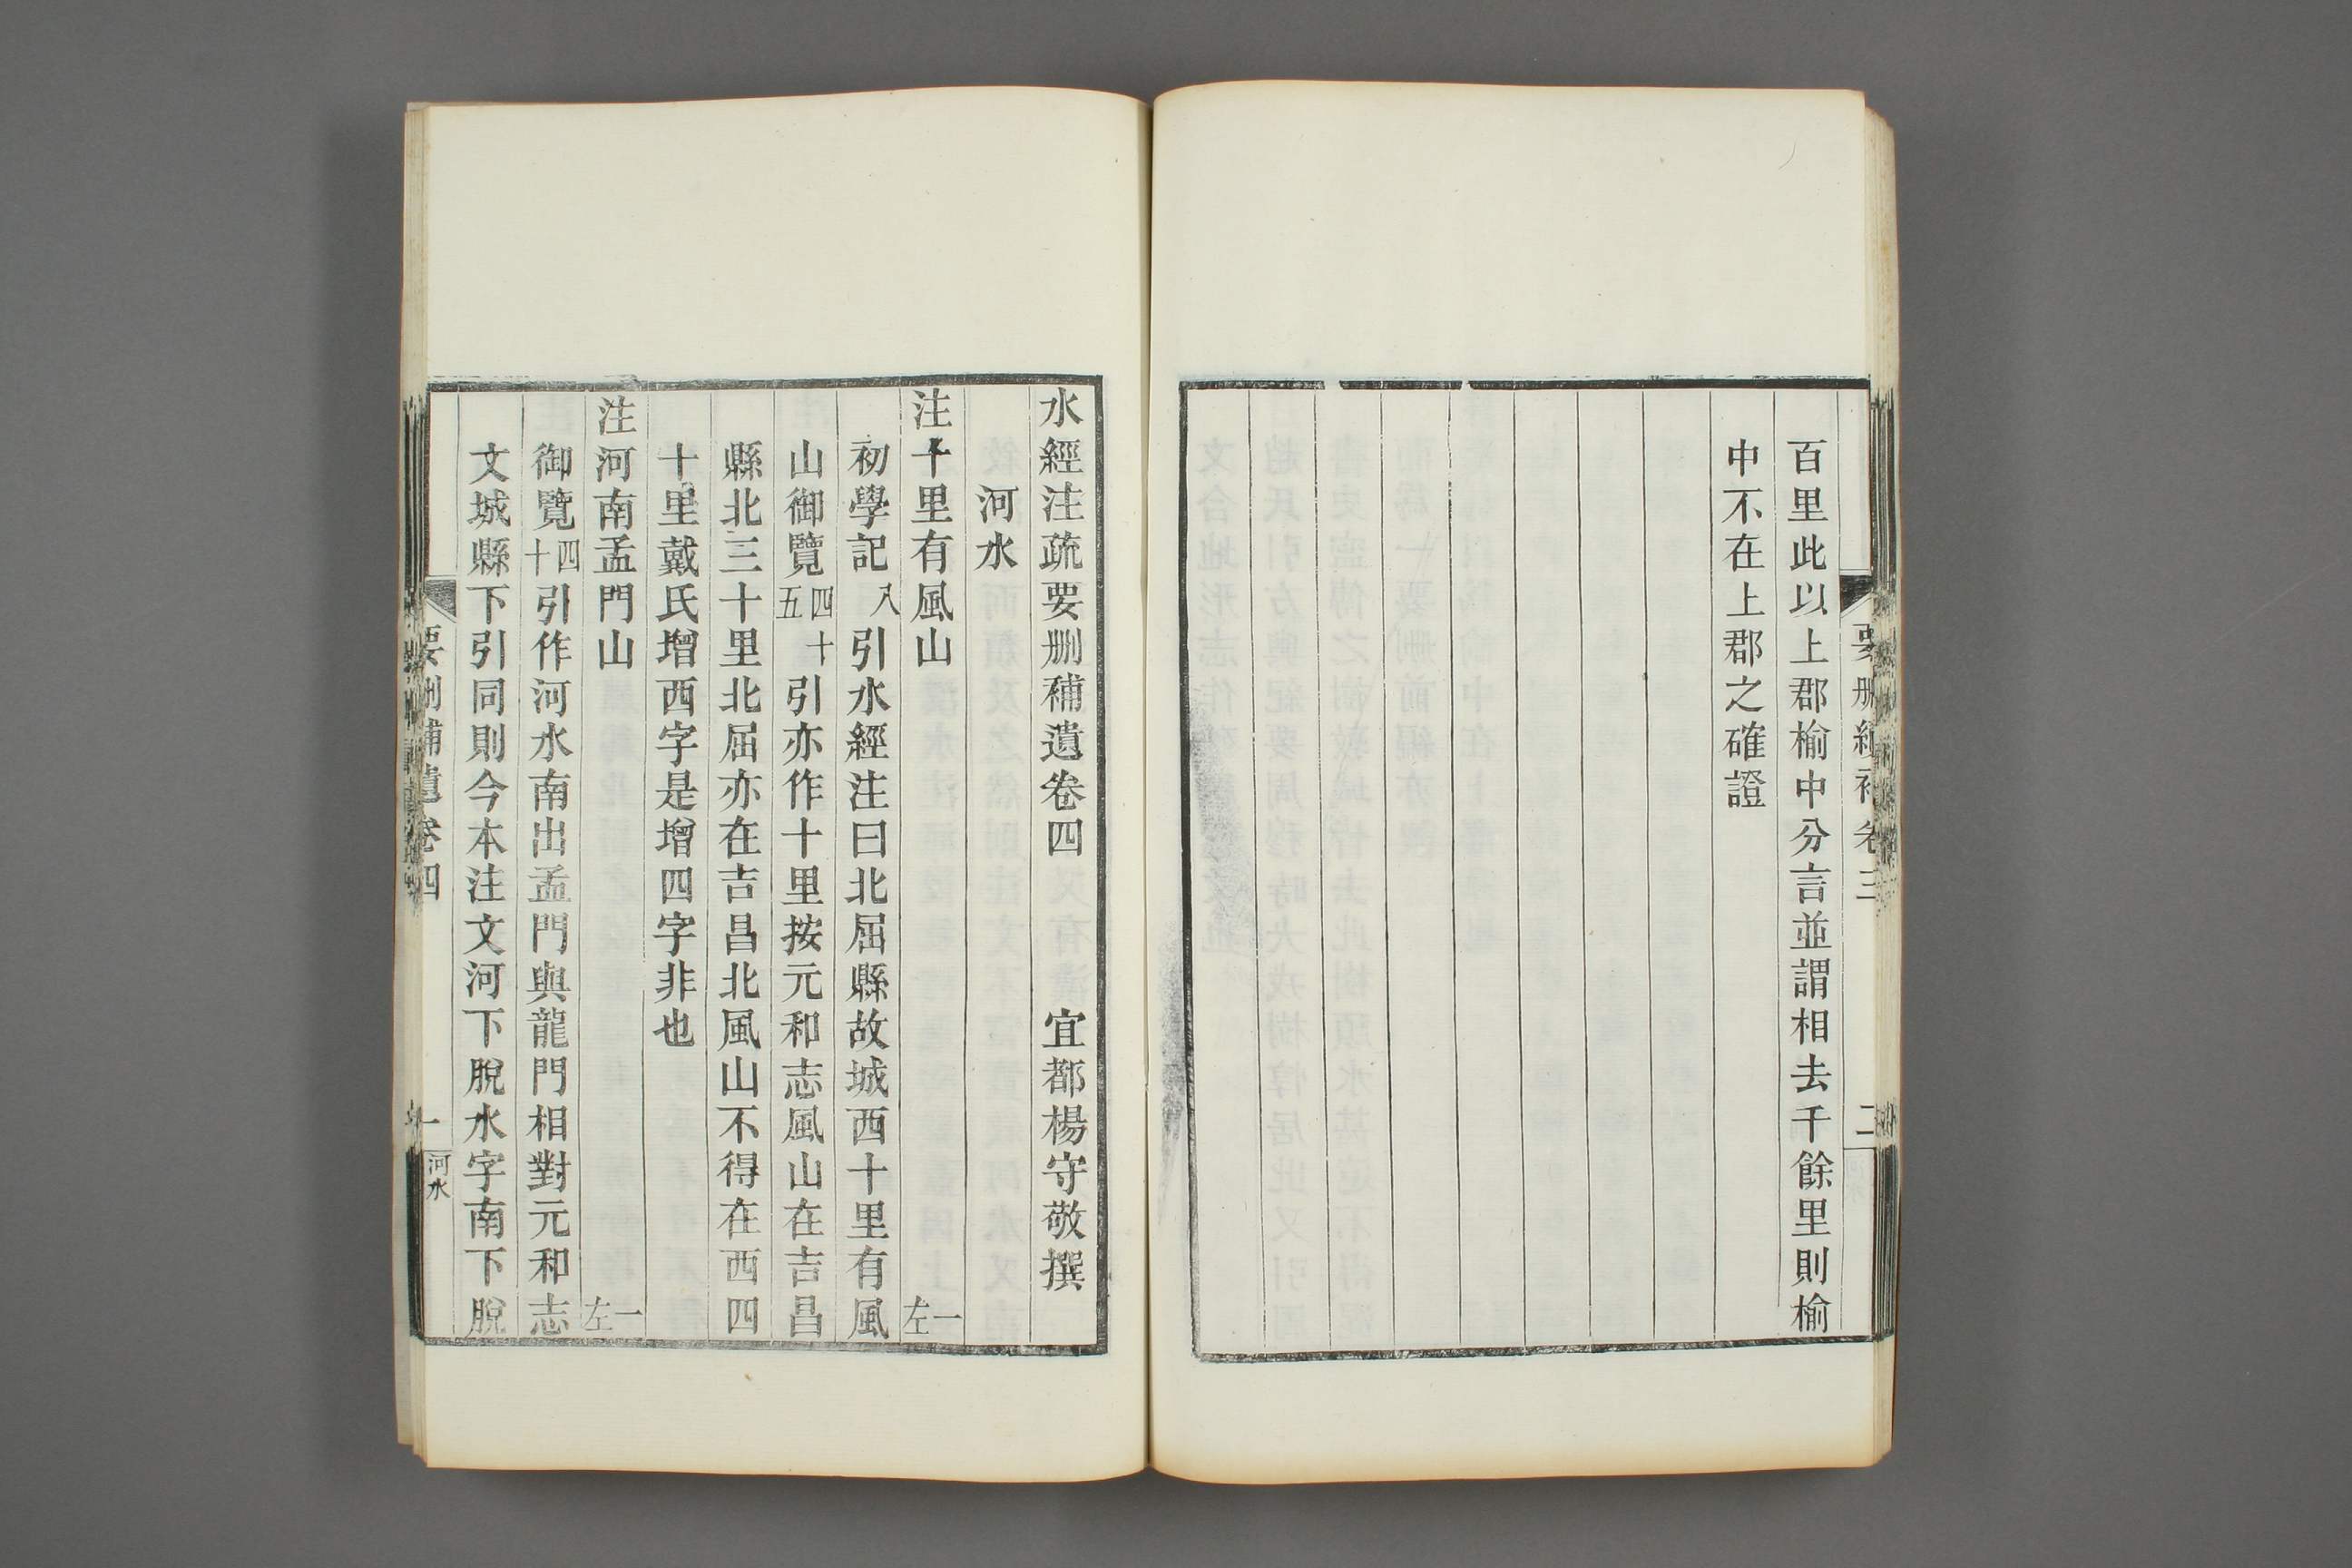 百里此以上郡榆中分言並謂相去千餘里則榆
中不在上郡之確證
要刪續補卷三
二
水經注疏要刪補遺卷四 宜都楊守敬撰
河水
注十里有風山 一左
初學記八引水經注曰北屈縣故城西十里有風
山御覽四十五引亦作十里按元和志風山在吉昌
縣北三十里北屈亦在吉昌北風山不得在西四
十里戴氏增西字是增四字非也
注河南孟門山 一左
御覽四十引作河水南出孟門與龍門相對元和志
文城縣下引同則今本注文河下脫水字南下脫
要刪補遺卷四
一
河水